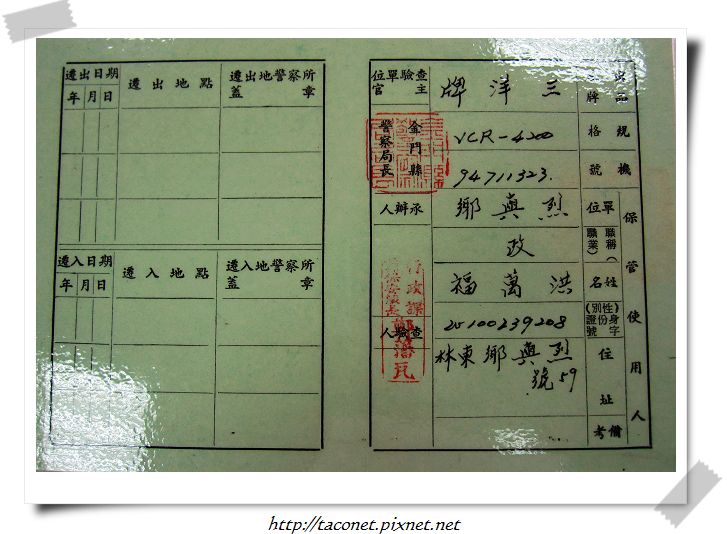 三洋牌
規格
VCR-4200
機號
94711323.
保管使用人
單位
職稱
(職業)
烈與鄉
政
姓名
洪萬福
(性別)
身份證
字號
住址
烈與鄉東林
59號
備考
查驗單位
主官
金門縣
警察局長
承辦人
查驗人
遷出日期
年月日
遷出地點
遷出地警察所
蓋章
遷入日期
年月日
遷入地點
遷入地警察所
蓋章
http://taconet.pixnet.net